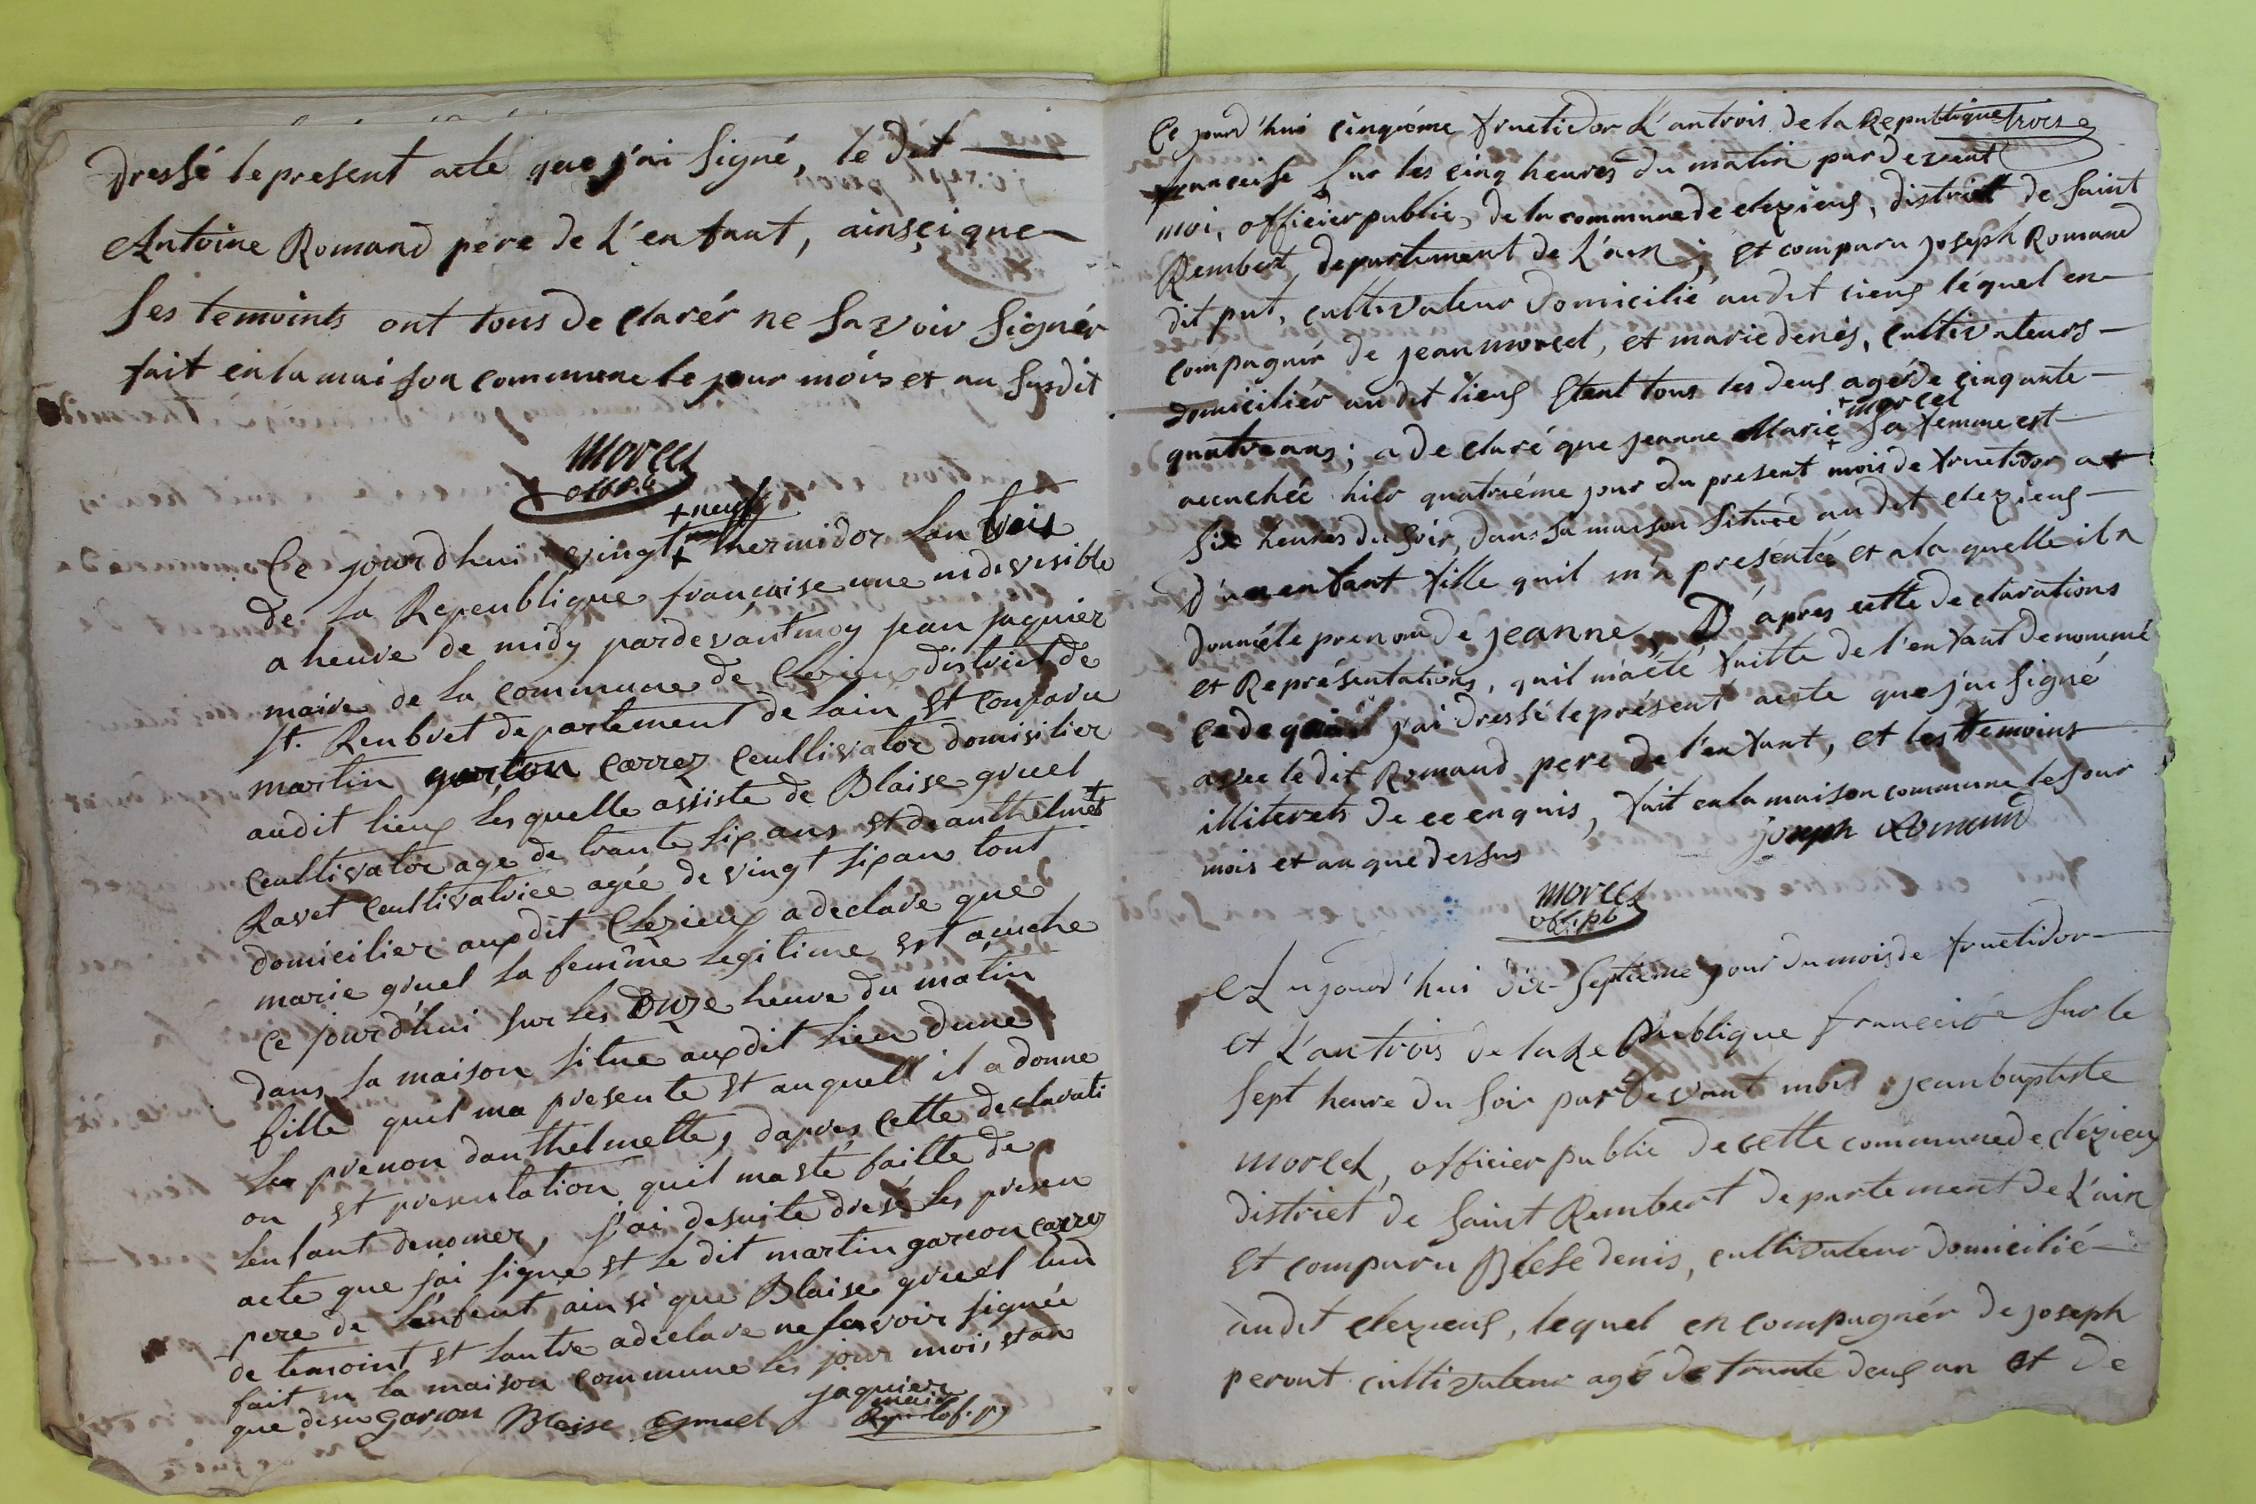 dressé le present acte que j'ai signé, le dit
Antoine Romand pere de L'enfant, ainseique
ses temoints ont tous declarér ne savoir signér
fait en la maison commune le jour mois et an susdit
morel
off. p.
+ neufs
Ce jourdhui vingt + thermidor lan trois
de la Repeublique française une indivisible
a heure de midy pardevantmoy jean jaguier
maire de la commune de Clezieux district de
st. Renbret departement de lain st conparu
martin garcon carrez ceultivator domisilier
audit lieux les quelle assiste de Blaise gruel
ceultivator age de trante six ans st de anthelmet +
Ravet ceultivatrice agée de vingt six an tout
domicilier auxdit Clezieux a declare que
marie gruel sa femme legitime est acuche
ce jourd'hui sur les onze heure du matin
dans sa maison situe auxdit lieu dune
fille quil ma presente st auquell il a donne
le prenon danthelmette, dapres cette declarati
on st presentation quil ma sté faitte de
lenfant denomer, j'ai desuite dresé les presen
acte que jai signe st le dit martin garcon carrez
pere de l'enfent ainsi que Blaise gruel lun
de temoint st lautre a declare ne savoir signée
fait en la maison commune les jour mois st an
que desu garcon Blaise Gruel jaquier
maire
of. p
Ce jourd'hui cinqiéme fructidor L'an trois de la Republique trois
francaise sur les cinq heures du matin pardevent
moi, officier public, de la commune de clezieus, district de saint
Rembert, departement de L'ain; et comparu joseph Romand
dit put, cultivateur domicilié audit lieus léquel en
compagnér de jean morel, et marie denis, cultivateurs
domiciliér au dit lieus etent tous les deus agés de cinqante
+ morel
quatre ans; a declaré que jeanne Marie + sa femme est
accuchée hier quatriéme jour du present mois de fructidor a
six heures du soir, dans sa maison située au dit clezieus
d'un enfant fille quil m'a presentée et a la quelle il a
donné le prenom de jeanne, D'apres cette declarations
et Représentations, quil m'a été faitte de l'enfant denommé
ce de j'ai dressé le présent acte que j'ai signé
avec le dit Romand pere de l'enfant, et les temoins
illiterets de ce enquis, fait en la maison commune le jour
mois et an que dessus joseph Romand
morel
off. pb
Aujourd'hui dix-septieme jour du mois de fructidor
et L'an trois de la Republique francaise sur le
sept heure du soir par devant moi jean baptiste
morel, officier public de cette commune de clézieux
district de saint Rembert departement de L'ain
et comparu Blese denis, cultivateur domicilié
audit clezieus, lequel en compagnér de joseph
peront cultivateur agé de trante deus an et de